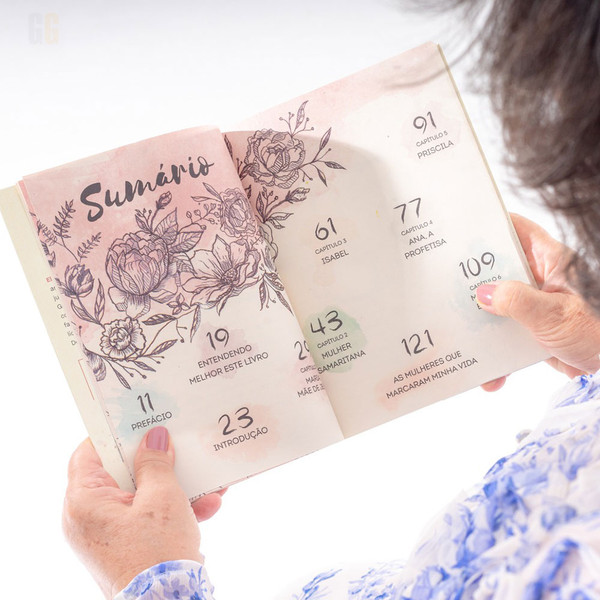 GG
Sumário
11
PREFÁCIO
19
ENTENDENDO
MELHOR ESTE LIVRO
23
INTRODUÇÃO
CAPÍTULO
MÃE DE
43
CAPÍTULO 2
MULHER
SAMARITANA
61
CAPÍTULO 3
ISABEL
77
CAPÍTULO 4
ANA, A
PROFETISA
91
CAPÍTULO 5
PRISCILA
109
CAPÍTULO 6
121
AS MULHERES QUE
MARCARAM MINHA VIDA